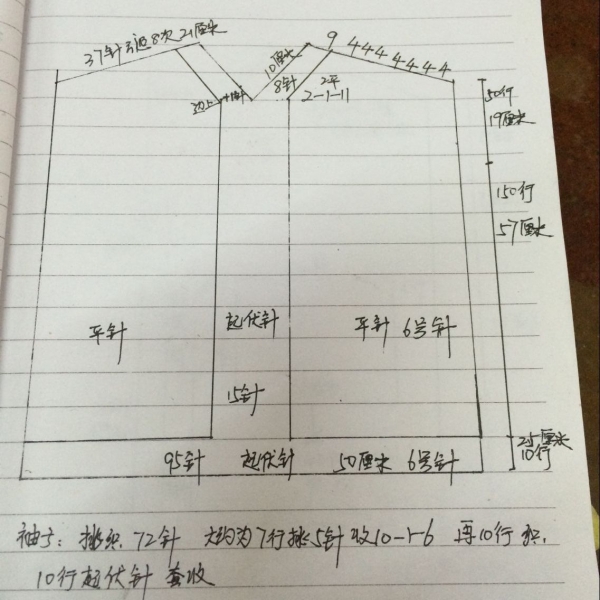 37针引返8次 21厘米
10厘米
8针
9 4 4 4 4 4 4 4
2平
2-1-11
边上
50行
19厘米
150行
57厘米
平针
起伏针
15针
平针 6号针
2.5厘米
10行
95针 起伏针 50厘米 6号针
袖子: 挑织72针 大约为7行挑5针 收10-1-6 再10行织,
10行起伏针 套收